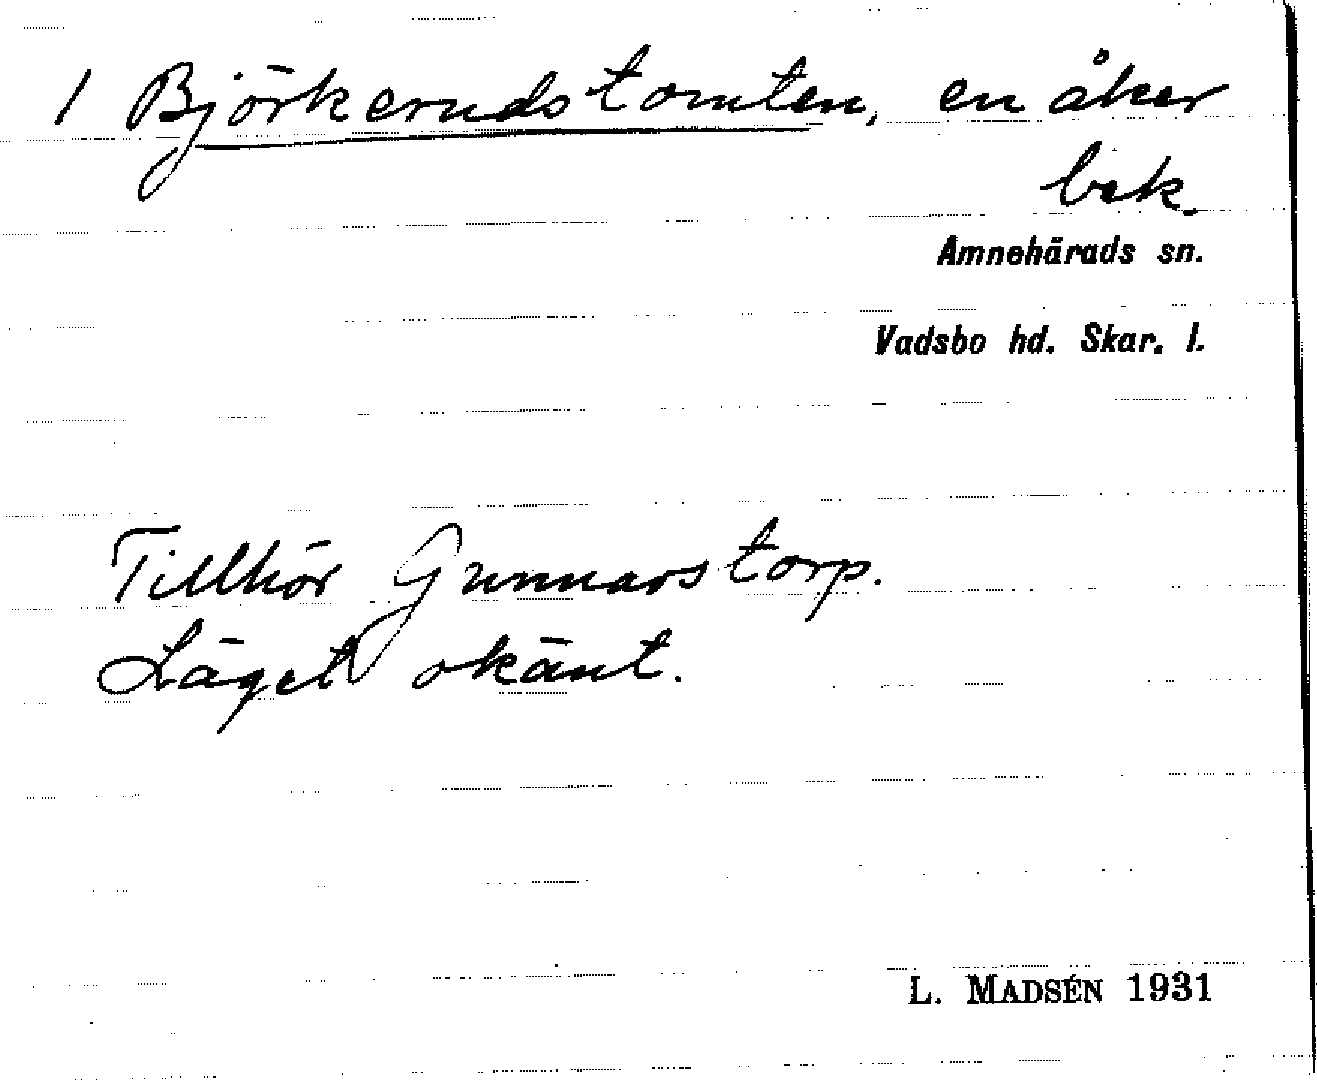 1 Björkerudstomten, en åker
bek.
Amnehärads sn.
Vadsbo hd. Skar. l.
Tillhör Gunnarstorp.
Läget okänt.
L. MADSÉN 1931